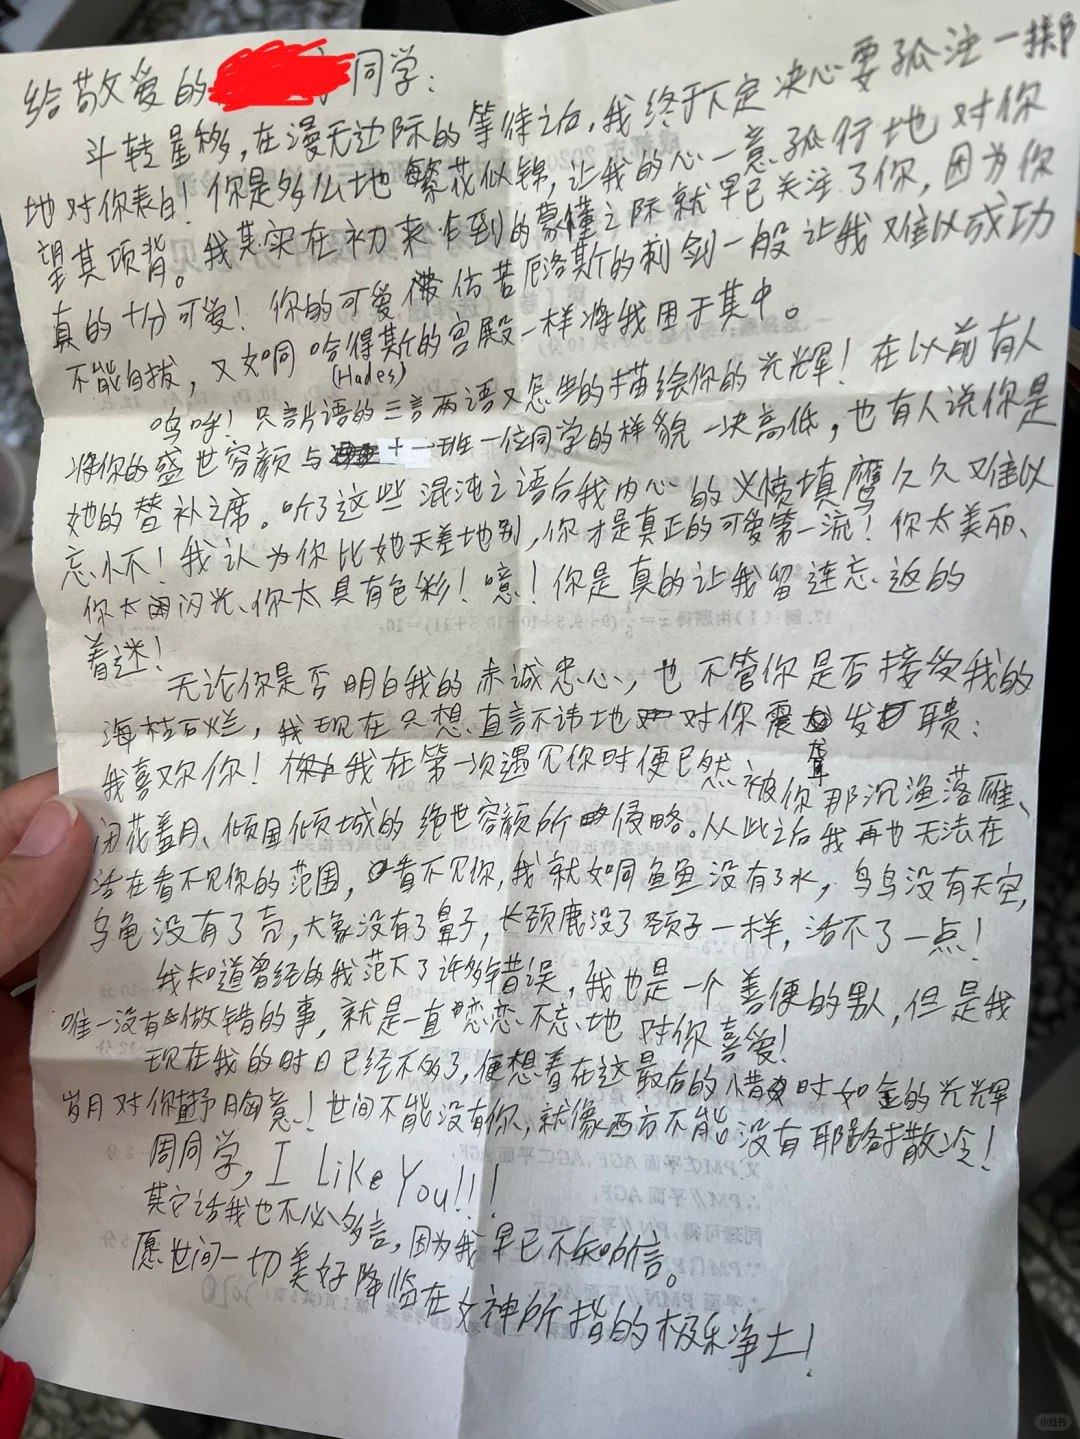 给敬爱的 同学：
斗转星移，在漫无边际的等待之后，我终于下定决心要孤注一掷
地对你表白！你是多么地繁花似锦，让我的心一意孤行地对你
望其项背。我其实在初来乍到的蒙懂之际就早已关注了你，因为你
真的十分可爱！你的可爱仿若厄洛斯的刺剑一般让我难以成功
不能自拔，又如同哈得斯的宫殿一样将我困于其中。
(Hades)
呜呼！只言片语的三言两语又怎些的描绘你的光辉！在以前有人
将你的盛世容颜与十一班一位同学的样貌一决高低，也有人说你是
她的替补之席。听了这些混沌之语后我内心的义愤填鹰久久难以
忘怀！我认为你比她天差地别，你才是真正的可爱第一流！你太美丽、
你太闪光、你太具有色彩！噫！你是真的让我留连忘返的
着迷！
无论你是否明白我的赤诚忠心，也不管你是否接受我的
海枯石烂，我现在只想直言不讳地对你震聋发聩：
我喜欢你！我在第一次遇见你时便已然被你那沉渔落雁、
闭花羞月、倾国倾城的绝世容颜所侵略。从此之后我再也无法在
活在看不见你的范围，看不见你，我就如同鱼鱼没有了水，鸟鸟没有天空，
乌龟没有了壳，大象没有了鼻子，长颈鹿没了颈子一样，活不了一点！
我知道曾经的我范下了许多错误，我也是一个善便的男人，但是我
唯一没有做错的事，就是一直恋恋不忘地对你喜爱！
现在我的时日已经不够了，便想着在这最后的惜时如金的光辉
岁月对你抒胸意！世间不能没有你，就像西方不能没有耶路撒冷！
周同学，I Like You!!!
其它话我也不必多言，因为我早已不知所言。
愿世间一切美好降临在女神所指的极乐净土！
小红书